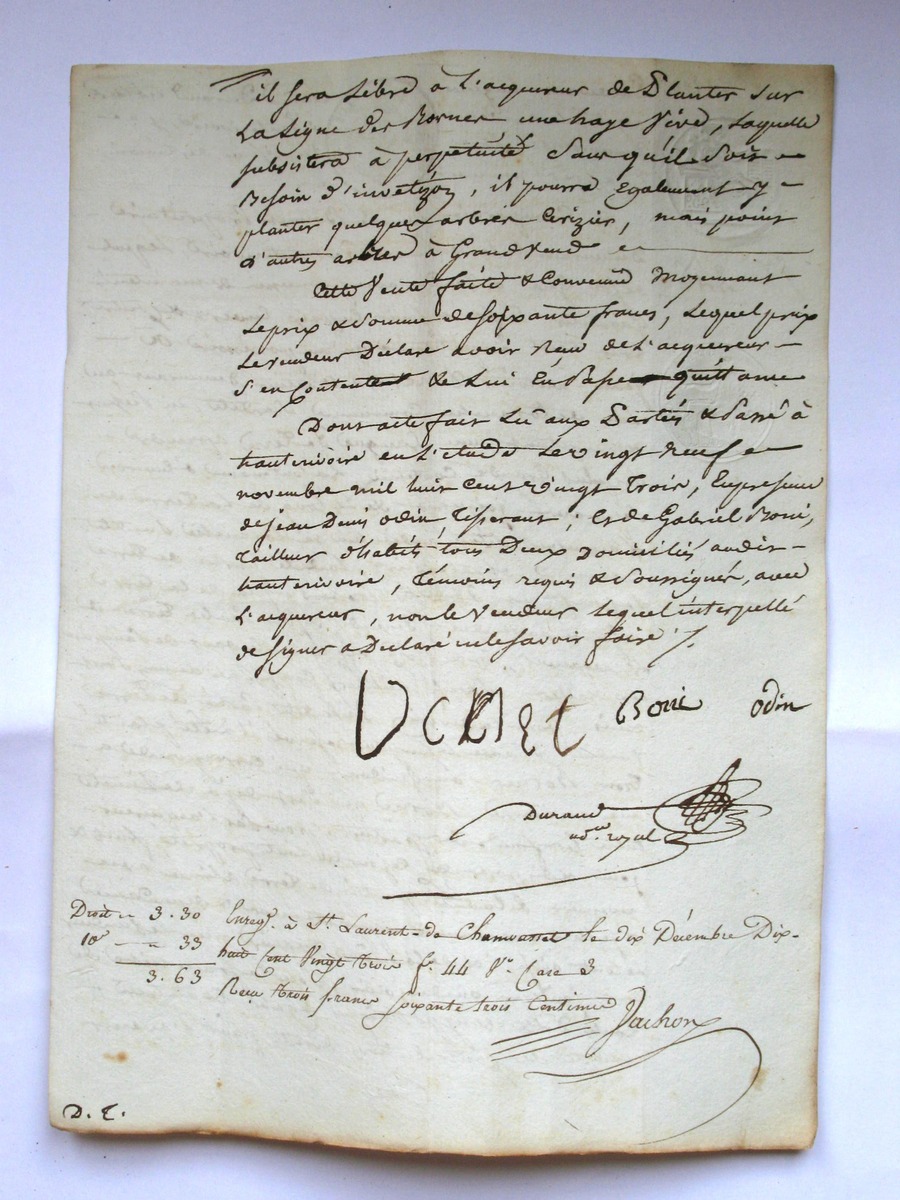 il sera Libre à L'acquereur de Planter sur
La Ligne des Bornes une haye Vive, Laquelle
subsistera à perpetuité Sans qu'il Soit
Besoin d'invetizon, il pourra Egalement y
planter quelques arbres Cerizier, mais point
d'autres arbres à Grand Vend
Cette Vente faite & Convenue Moyennant
Le prix & Somme de Soixante francs, Lequel prix
Le vendeur Déclare avoir Reçu de L'acquereur
S'en Contente & Lui En Passe quittance
Dont acte fait Lû aux Parties & Passé à
hauterivoire en L'etude Le vingt Neuf
novembre mil huit Cent vingt Trois, En presence
de Jean Denis Odin, Tisserant; Et de Gabriel Borie,
Tailleur d'habits tous Deux Domiciliés audit
hauterivoire, Témoins requis & Soussignés, avec
L'acquereur, non le Vendeur Lequel interpellé
de Signer a Declaré ne le Savoir faire ./.
Borie Odin
Durand
royal
Droit 3.30 Enreg. à St. Laurent-de Chamousset le dix Décembre Dix-
10e 33 huit Cent Vingt trois f. 44 Vo. Case 3
3.63
Reçu trois francs soixante trois Centimes
D. T.